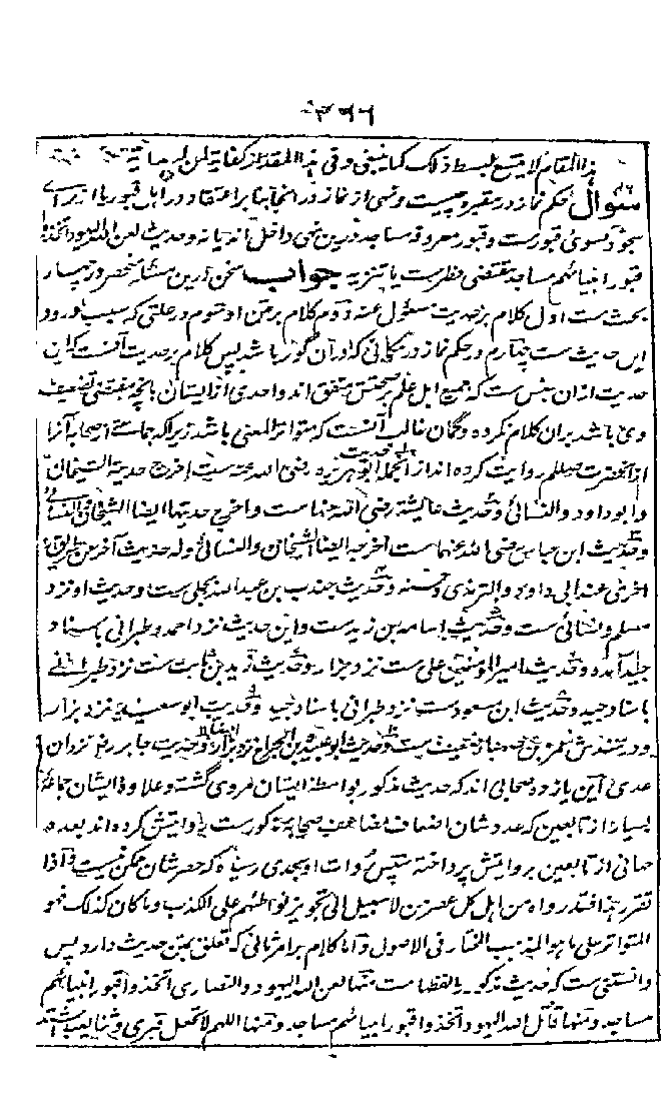 ۳۹۶
هذا المقام لا يتسع لبسط ذلك كما ينبغي وفي هذا المقدار كفاية لمن له هداية
سوال حکم نماز در مقبره چیست ونهی از نماز در انجا بنا بر اعتقاد در اهل قبور یا از برای
سجود بسوی قبورست وقبور معروفه مساجد درین نهی داخل اند یا نه وحدیث لعن الله الیهود اتخذوا
قبور انبیائهم مساجد مقتضی حظرست یا تنزیه جواب سخن درین مسئله منحصر در چهار
بحث ست اول کلام بر حدیث مسئول عنه دوم کلام بر متن او سوم در علتی که سبب ورود
این حدیث ست چهارم در حکم نماز در مکانی که در آن گور باشد پس کلام بر حدیث آنست که این
حدیث ازان جنس ست که جمیع اهل علم بر صحتش متفق اند واحدی از ایشان بانچه مقتضی تضعیف
وی باشد بران کلام نکرده وگمان غالب آنست که متواتر المعنی باشد زیراکه جماعتی از صحابه آنرا
از آنحضرت صلعم روایت کرده اند ازانجمله حدیث ابوهریره رضی الله عنه ست اخرج حدیثه الشیخان
وابوداود والنسائی وحدیث عایشه رضی الله عنها ست واخرج حدیثها ایضا الشیخان والنسائی
وحدیث ابن عباس رضی الله عنهما ست اخرجه ایضا الشیخان والنسائی وله حدیث آخر من طریق
اخری عند ابی داود والترمذی وحسنه وحدیث جندب بن عبدالله بجلی ست وحدیث او نزد
مسلم ونسائی ست وحدیث اسامه بن زید ست واین حدیث نزد احمد وطبرانی باسناد
جید آمده وحدیث امیر المومنین علی ست نزد بزار وحدیث زید بن ثابت ست نزد طبرانی
باسناد جید وحدیث ابن مسعود ست نزد طبرانی باسناد جید وحدیث ابو سعید نزد بزار
ودر سندش عمر بن ضعیف ست وحدیث ابو عبیده بن الجراح نزد بزار وحدیث جابر نزد ان
عدی این یازده صحابی اند که حدیث مذکور بواسطه ایشان مروی گشته وعلاوه ایشان جماعه
بسیار از تابعین که عدد شان اضعاف مضاعف صحابه مذکورست روایتش کرده اند بعده
جمعی از تابعین بروایتش پرداخته سپس روات او بحدی رسیده که حصر شان ممکن نیست واذا
تقرر هذا فقد رواه من اهل کل عصر من لا سبیل الی تجویز تواطئهم علی الکذب وما کان کذلک فهو
المتواتر علی ما هو المذهب المختار فی الاصول واما کلام بر امر ثانی که تعلق بمتن حدیث دارد پس
دانستنی ست که حدیث مذکور بالفاظ ست منها لعن الله الیهود والنصاری اتخذوا قبور انبیائهم
مساجد ومنها قاتل الله الیهود اتخذوا قبور انبیائهم مساجد ومنها اللهم لا تجعل قبری وثنا یعبد اشتد